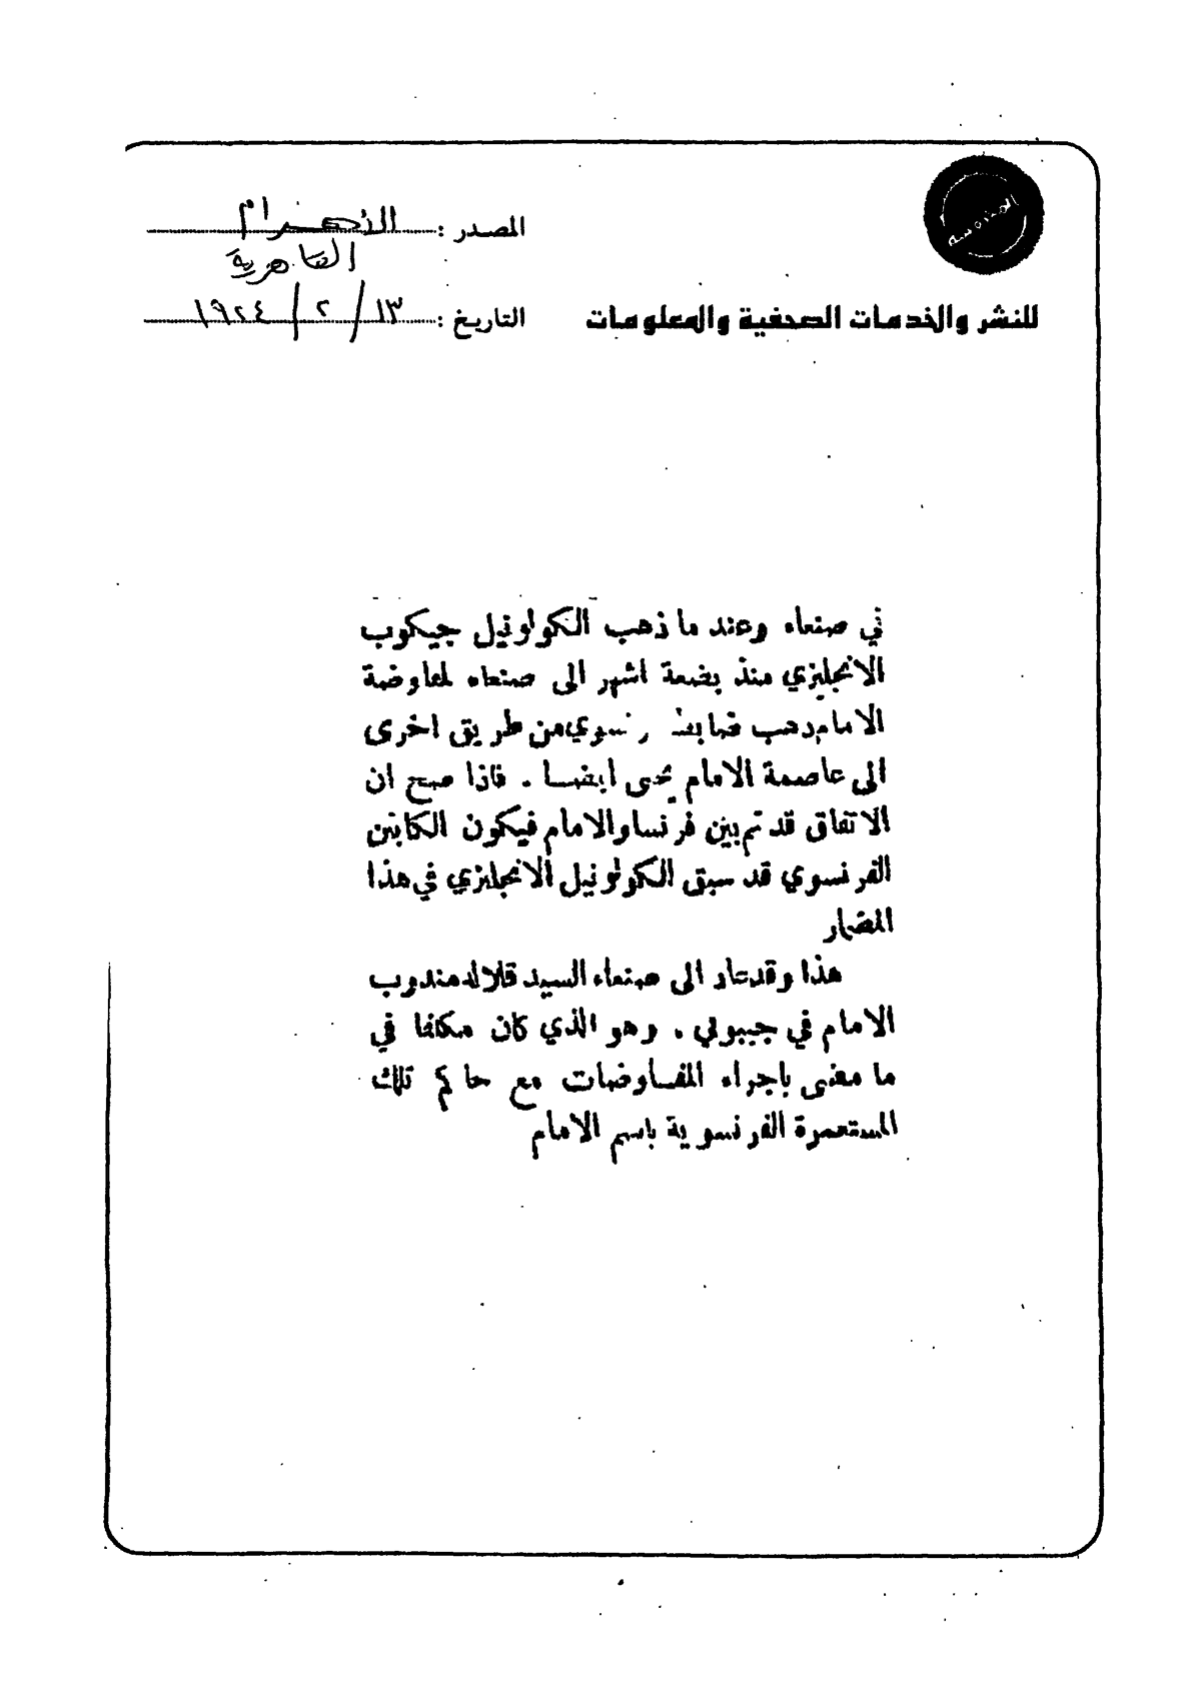 المصدر : الأهرام
القاهرية
للنشر والخدمات الصحفية والمعلومات
التاريخ : ١٣ / ٢ / ١٩٢٤
في صنعاء وعند ما ذهب الكولونيل جيكوب
الانجليزي منذ بضعة اشهر الى صنعاء لمفاوضة
الامام ذهب من طريق اخرى
الى عاصمة الامام يحيى ايضا . فاذا صح ان
الاتفاق قد تم بين فرنسا والامام فيكون الكابتن
الفرنسوي قد سبق الكولونيل الانجليزي في هذا
المضمار
هذا وقد الى صنعاء السيد مندوب
الامام في جيبوتي . وهو الذي كان مكلفا في
ما مضى باجراء المفاوضات مع حاكم تلك
المستعمرة الفرنسوية باسم الامام